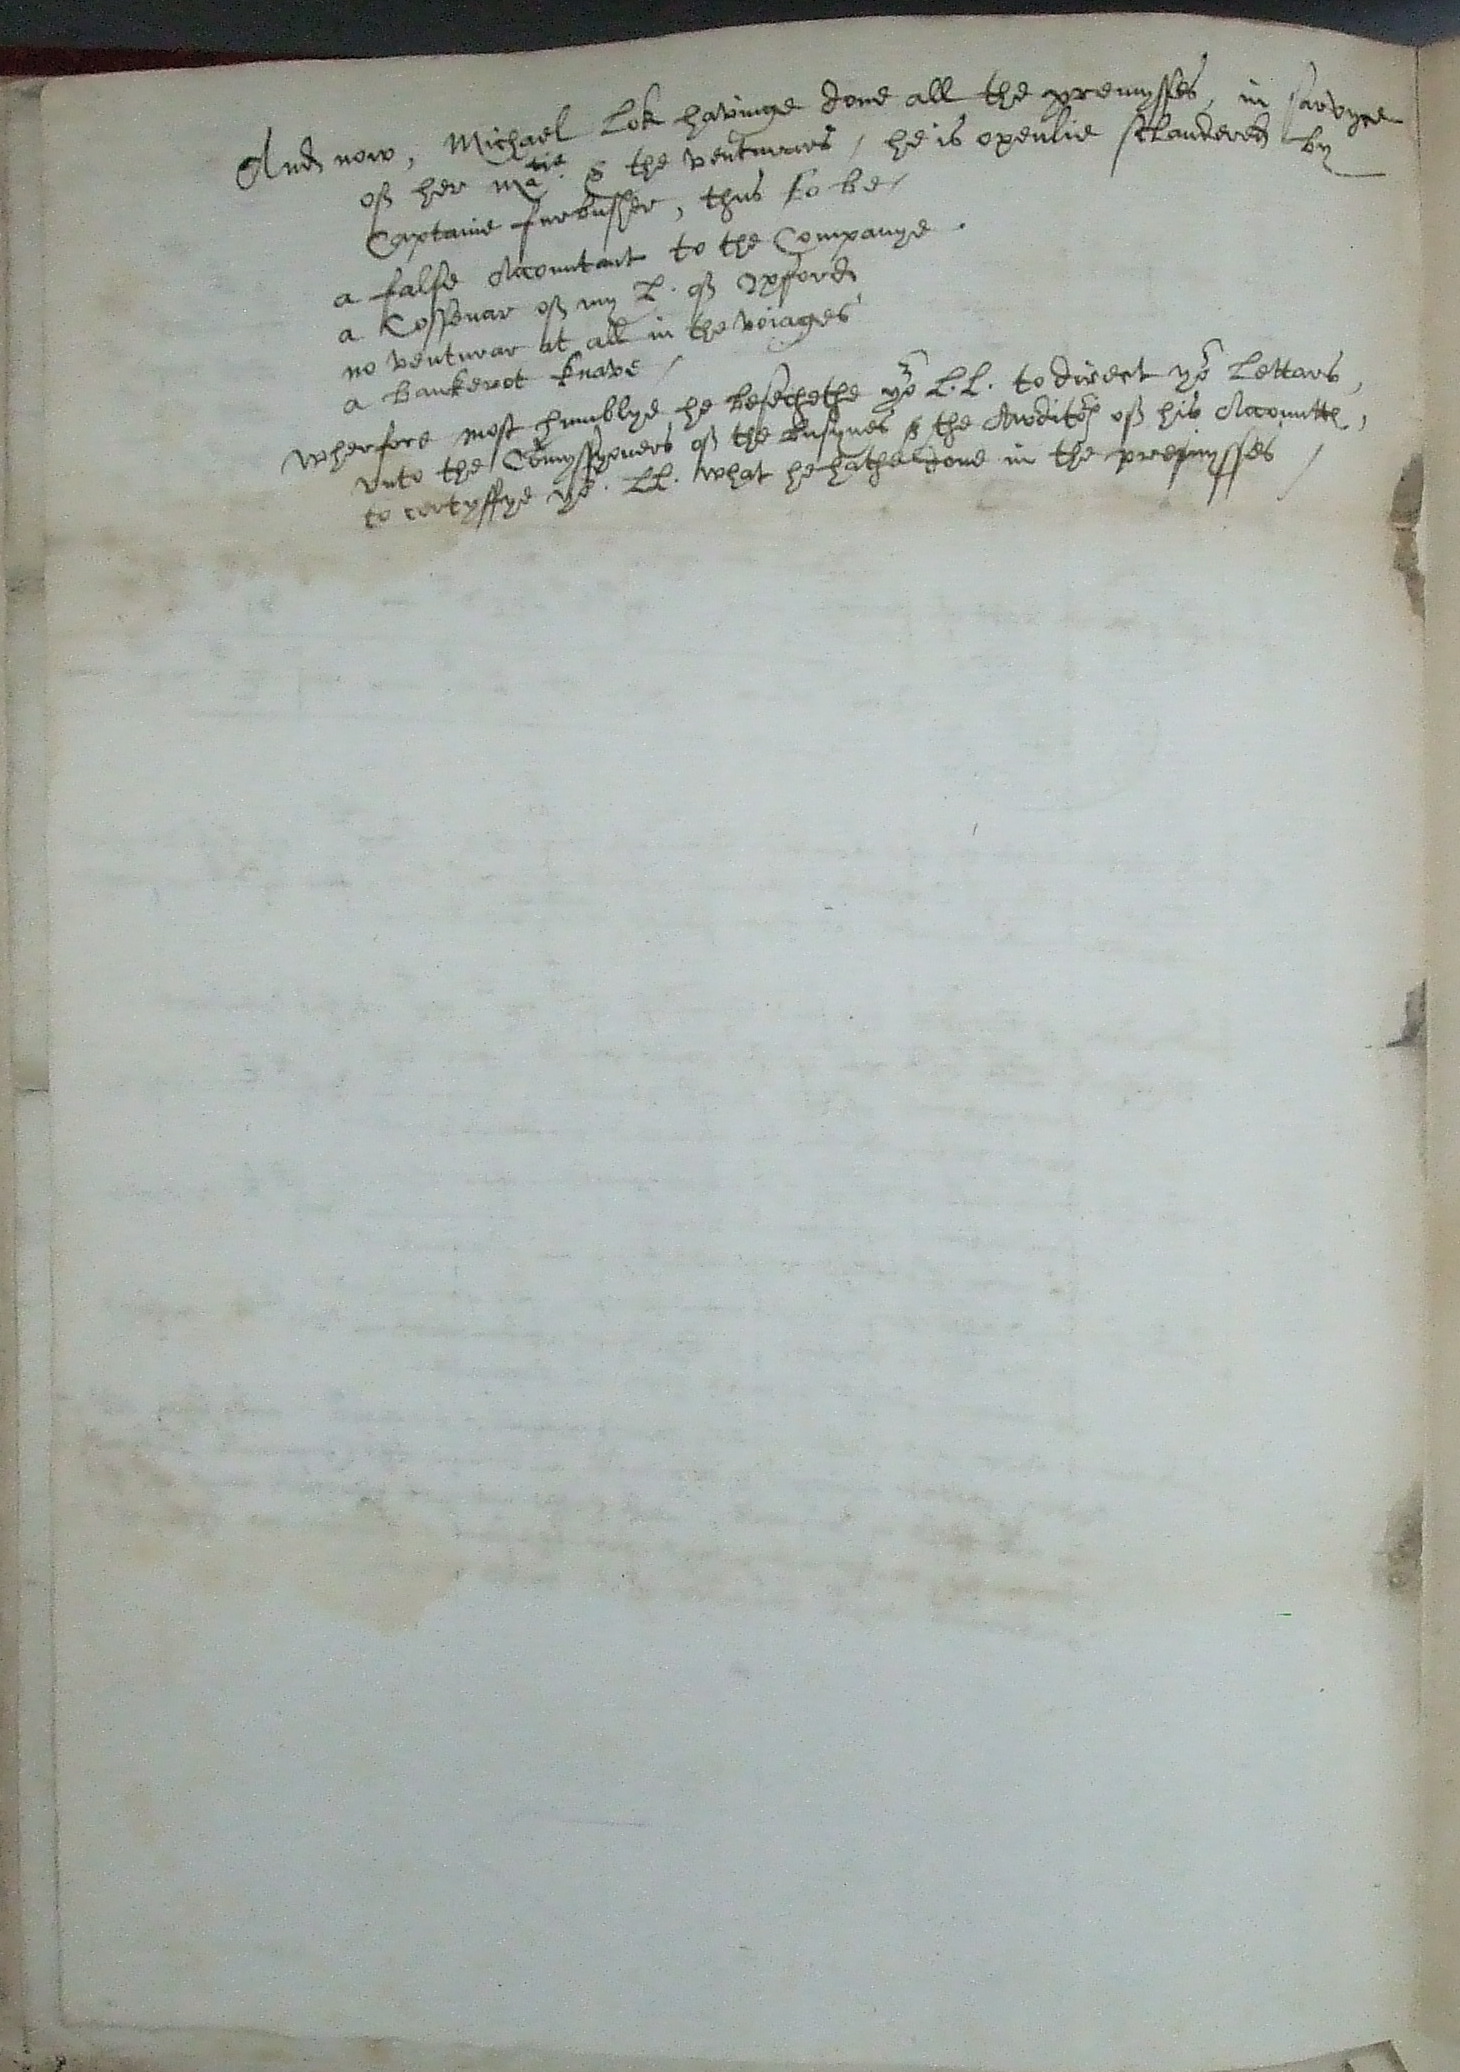 And now, Michael Lok havinge done all the premysses, in sarvyce
of her Matie. & the venturars, he is openlie sclandered by
Captaine Furbussher, thus to be,
a false Accountant to the Companye.
a Cossenar of my L. of Oxford,
no venturar at all in the voiages
a bankerot knave,
Wherfore most humblye he besechethe yor L.L. to direct yor Lettars,
unto the Comyssyoners of the busynes & the Awditors of his Accountes,
to certyffye yor. LL. what he hathe done in the premysses,